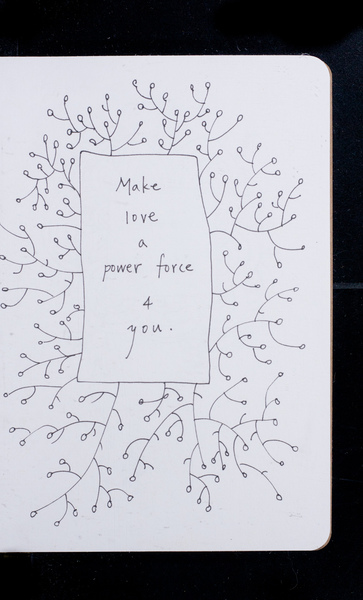 Make
love
a
power force
4
you.